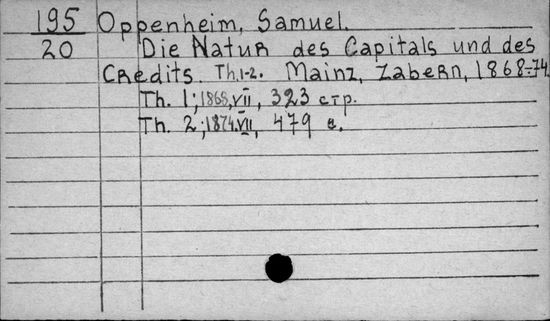 195 Oppenheim, Samuel.
20 Die Natur des Capitals und des
Credits. Th. 1-2. Mainz, Zabern, 1868-74.
Th. 1; 1868, VII, 323 стр.
Th. 2; 1874. VII, 479 с.